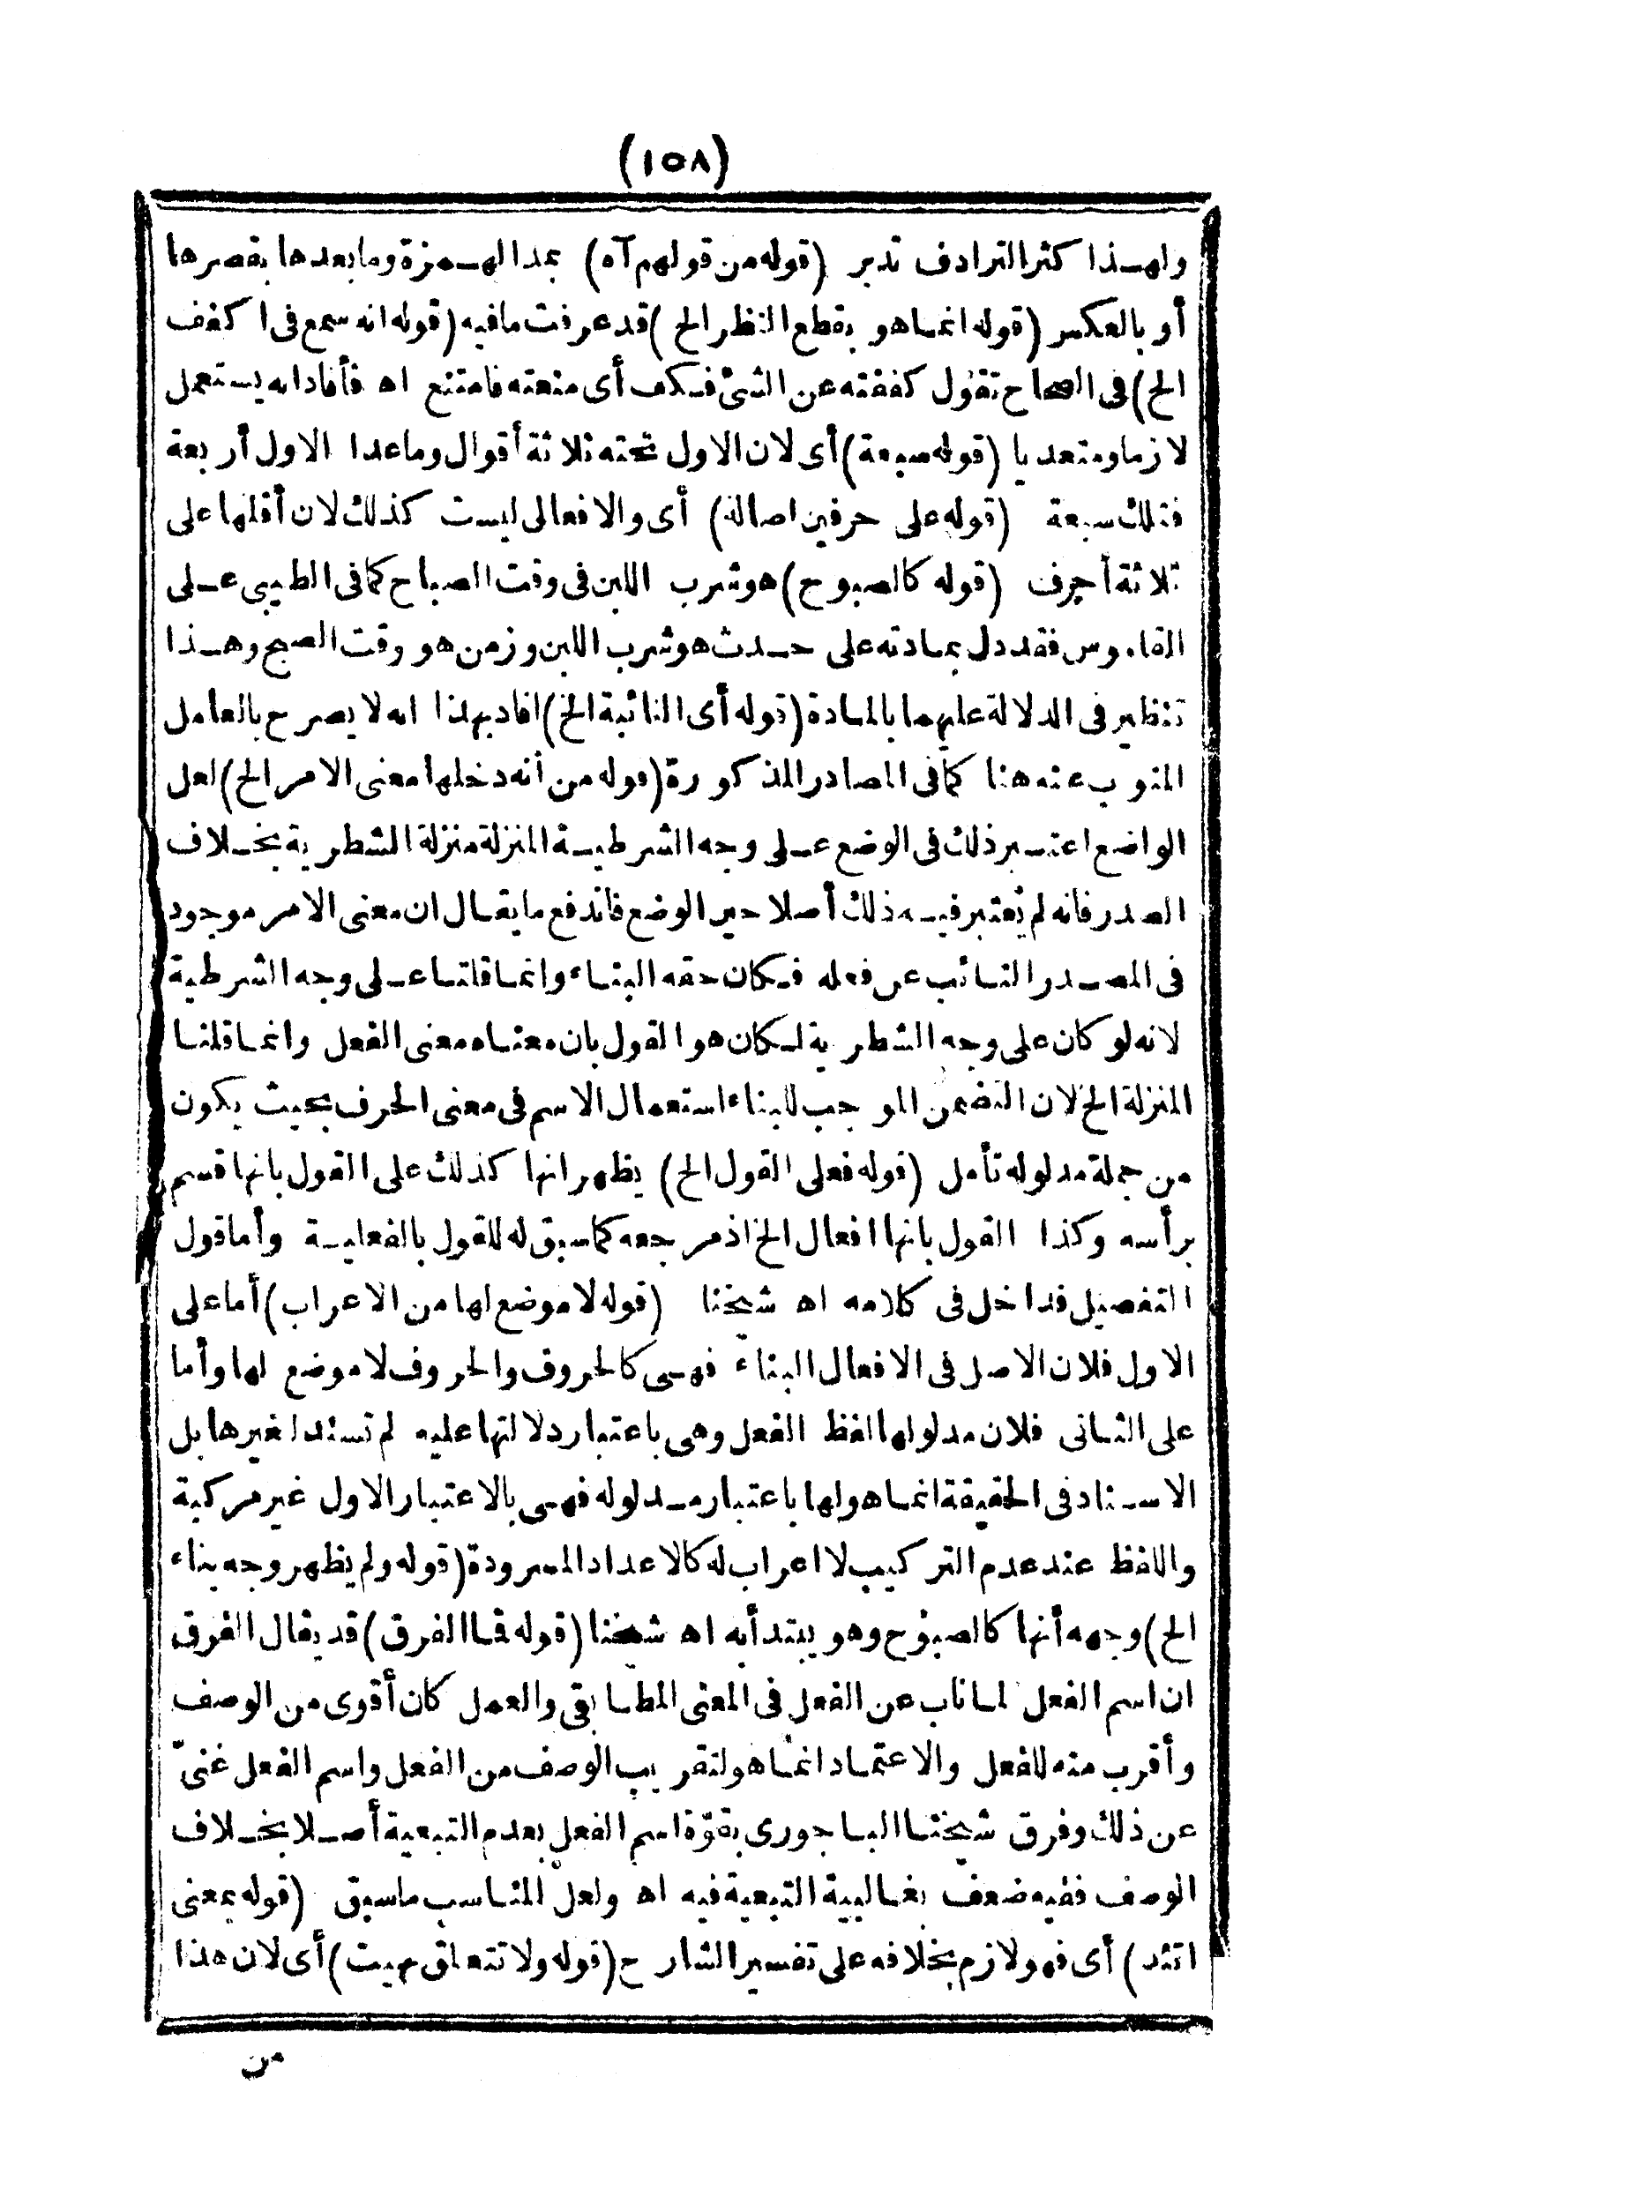 (١٥٨)
ولهذا كثر الترادف تدبر (قوله من قولهم آه) بمد الهمزة وما بعدها بقصرها
أو بالعكس (قوله انما هو بقطع النظر الخ) قد عرفت ما فيه (قوله انه سمع في اكفف
الخ) في الصحاح تقول كففته عن الشئ فكف أى منعته فامتنع اه فأفاد انه يستعمل
لازما ومتعديا (قوله سبعة) أى لان الاول تحته ثلاثة أقوال وما عدا الاول أربعة
فتلك سبعة (قوله على حرفين اصالة) أى والافعال ليست كذلك لان أقلها على
ثلاثة أحرف (قوله كالصبوح) هو شرب اللبن في وقت الصباح كما في الطيبي على
القاموس فقد دل بمادته على حدث هو شرب اللبن وزمن هو وقت الصبح وهذا
تنظير في الدلالة عليهما بالمادة (قوله أى النائبة الخ) افاد بهذا انه لا يصرح بالعامل
المنوب عنه هنا كما في المصادر المذكورة (قوله من أنه دخلها معنى الامر الخ) لعل
الواضع اعتبر ذلك في الوضع على وجه الشرطية المنزلة منزلة الشطرية بخلاف
المصدر فانه لم يعتبر فيه ذلك أصلا حين الوضع فاندفع ما يقال ان معنى الامر موجود
في المصدر النائب عن فعله فكان حقه البناء وانما قلنا على وجه الشرطية
لانه لو كان على وجه الشطرية لكان هو القول بان معناه معنى الفعل وانما قلنا
المنزلة الخ لان التضمن الموجب للبناء استعمال الاسم في معنى الحرف بحيث يكون
من جملة مدلوله تأمل (قوله فعلى القول الخ) يظهر انها كذلك على القول بانها قسم
برأسه وكذا القول بانها افعال الخ اذ مرجعه كما سبق له للقول بالفعلية وأما قول
التفصيل فداخل في كلامه اه شيخنا (قوله لا موضع لها من الاعراب) أما على
الاول فلان الاصل في الافعال البناء فهى كالحروف والحروف لا موضع لها وأما
على الثانى فلان مدلولها لفظ الفعل وهى باعتبار دلالتها عليه لم تسند لغيرها بل
الاسناد في الحقيقة انما هو لها باعتبار مدلوله فهى بالاعتبار الاول غير مركبة
واللفظ عند عدم التركيب لا اعراب له كالاعداد المسرودة (قوله ولم يظهر وجه بناء
الخ) وجهه أنها كالصبوح وهو يبتدأ به اه شيخنا (قوله فما الفرق) قد يقال الفرق
ان اسم الفعل لما ناب عن الفعل في المعنى المطابقى والعمل كان أقوى من الوصف
وأقرب منه للفعل والاعتماد انما هو لتقريب الوصف من الفعل واسم الفعل غنىّ
عن ذلك وفرق شيخنا الباجورى بقوّة اسم الفعل بعدم التبعية أصلا بخلاف
الوصف ففيه ضعف بغالبية التبعية فيه اه ولعل المناسب ما سبق (قوله بمعنى
اتئد) أى فهو لازم بخلافه على تفسير الشارح (قوله ولا تتعلق بهيت) أى لان هذا
من